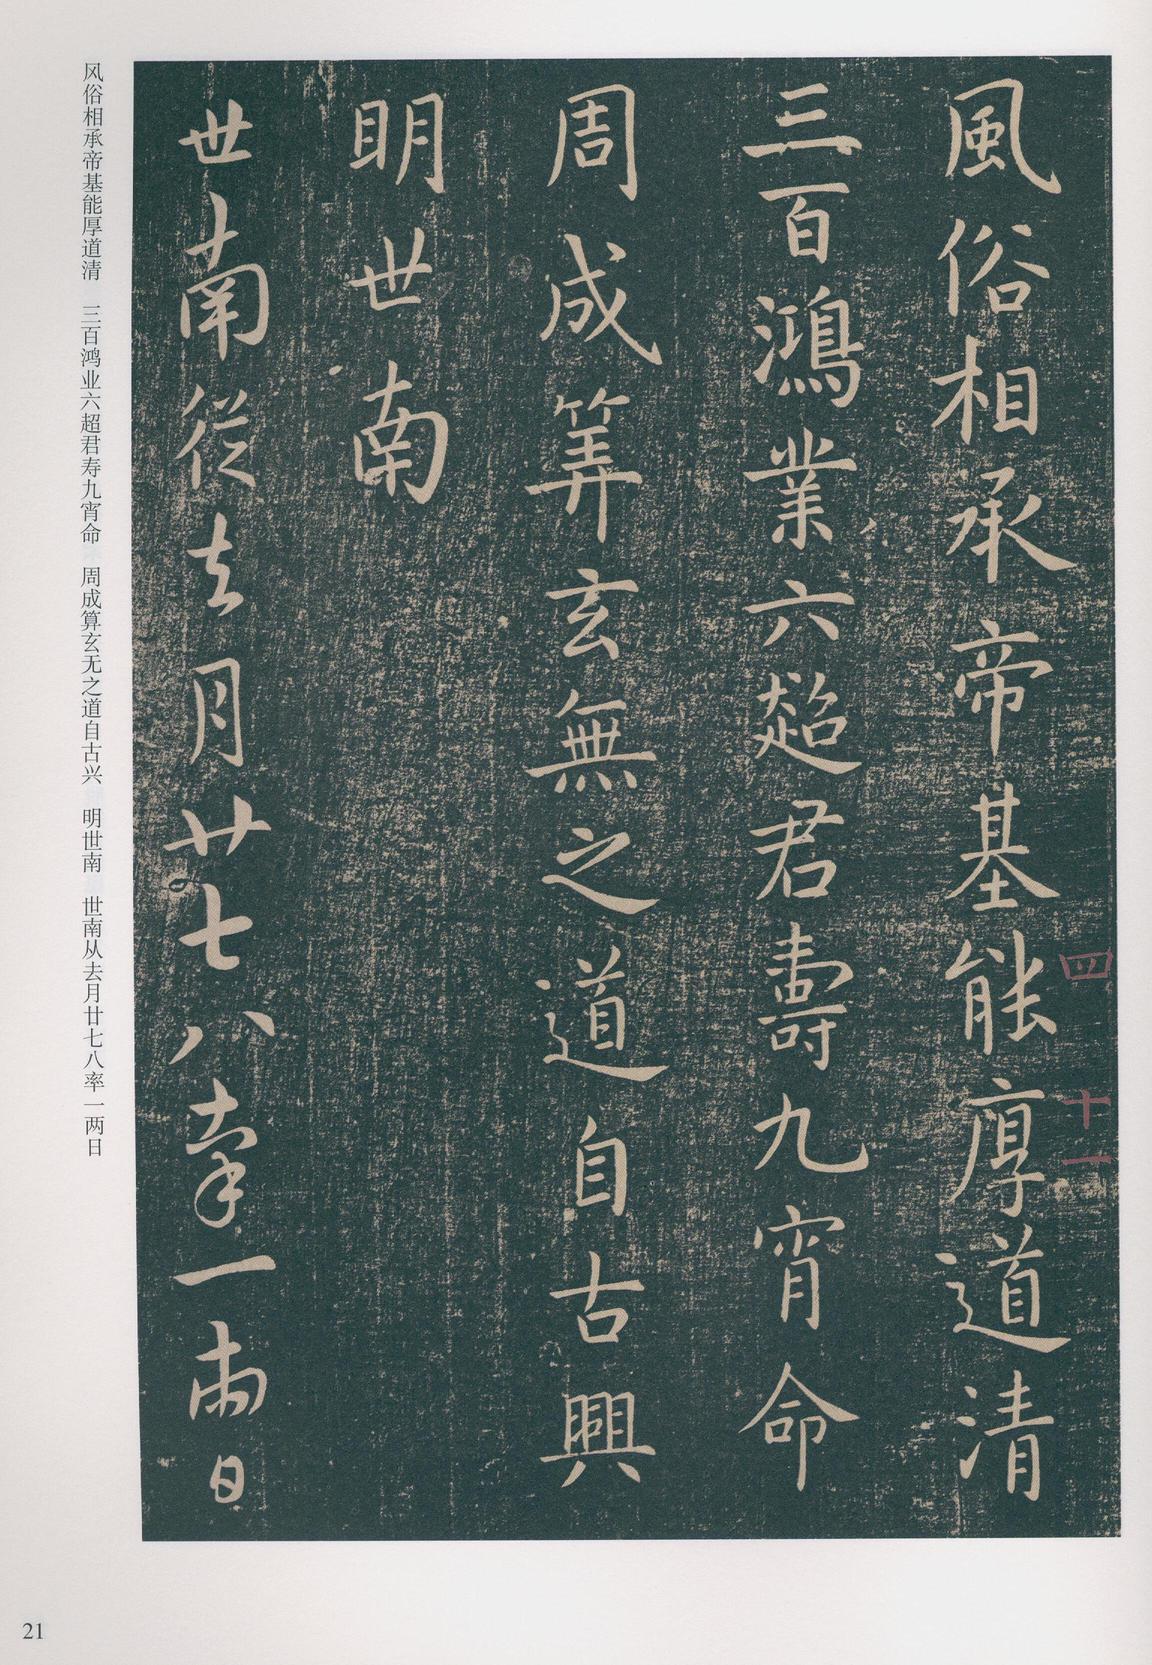 風俗相承帝基能厚道清
四 十一
三百鴻業六超君壽九宵命
周成筭玄無之道自古興
明世南
世南從去月廿七八率一兩日
风俗相承帝基能厚道清 三百鸿业六超君寿九宵命 周成算玄无之道自古兴 明世南 世南从去月廿七八率一两日
21